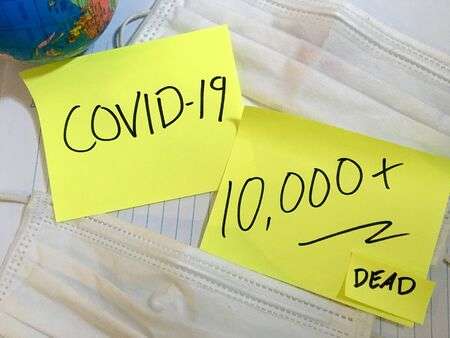 COVID-19
10,000+
DEAD